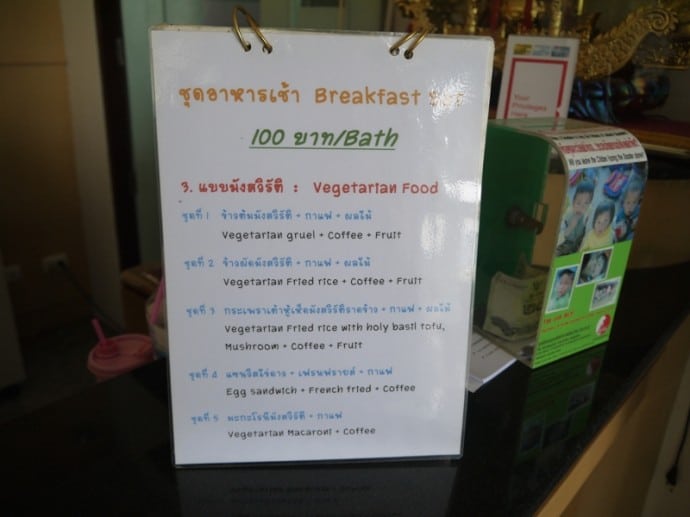 ชุดอาหารเช้า Breakfast Set
100 บาท/Bath
3. แบบมังสวิรัติ : Vegetarian Food
ชุดที่ 1 ข้าวต้มมังสวิรัติ + กาแฟ + ผลไม้
Vegetarian gruel + Coffee + Fruit
ชุดที่ 2 ข้าวผัดมังสวิรัติ + กาแฟ + ผลไม้
Vegetarian Fried rice + Coffee + Fruit
ชุดที่ 3 กระเพราเต้าหู้เห็ดมังสวิรัติราดข้าว + กาแฟ + ผลไม้
Vegetarian Fried rice with holy basil tofu,
Mushroom + Coffee + Fruit
ชุดที่ 4 แซนวิสไข่ดาว + เฟรนฟรายด์ + กาแฟ
Egg sandwich + French fried + Coffee
ชุดที่ 5 มะกะโรนีมังสวิรัติ + กาแฟ
Vegetarian Macaroni + Coffee
Your
Privileges
Here